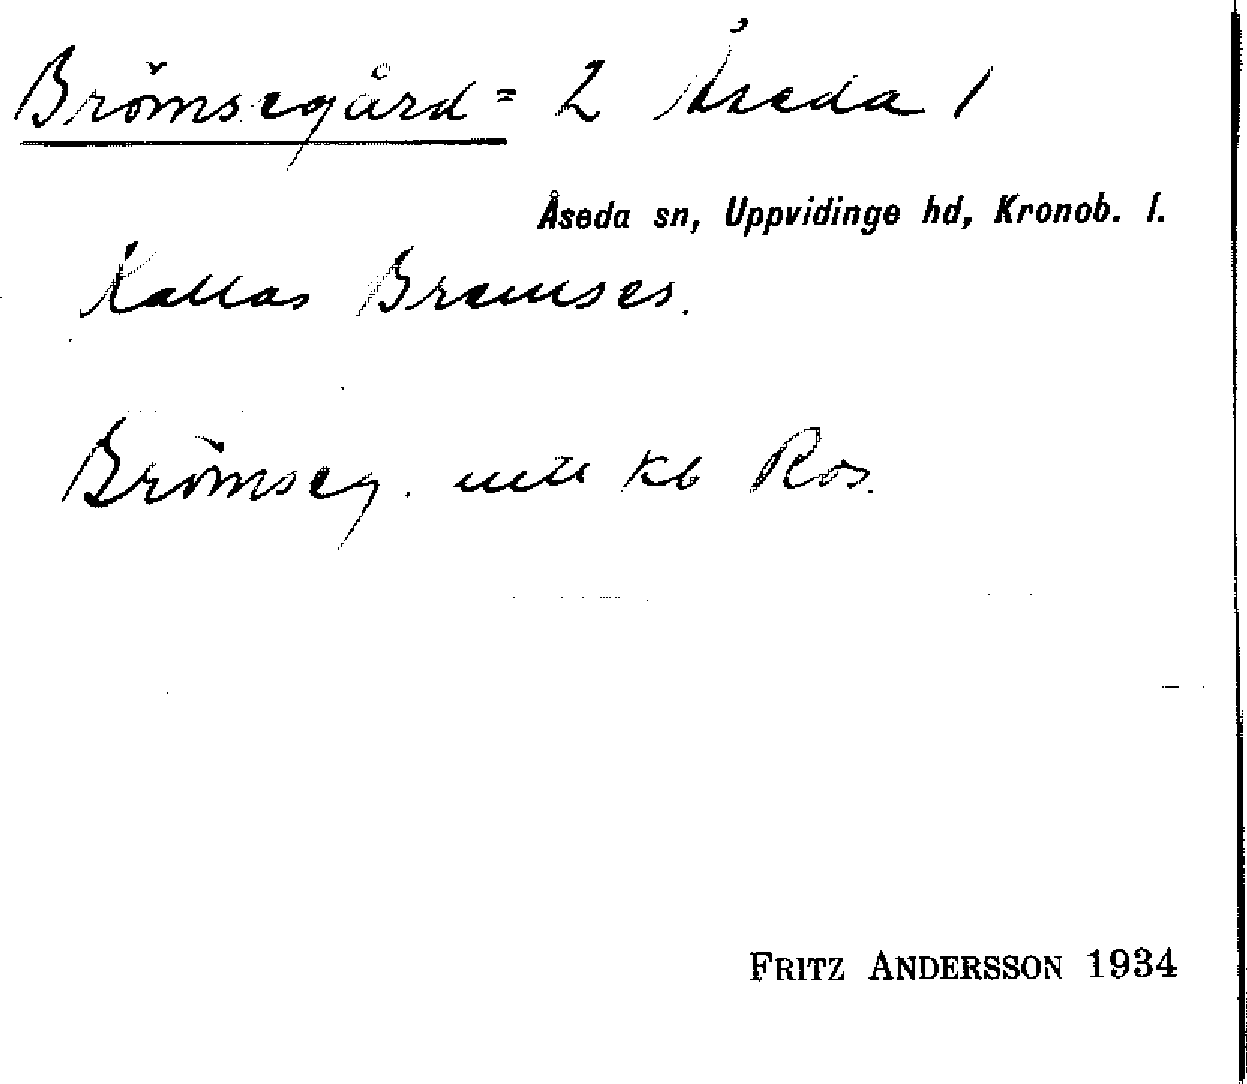 Brömsegård = 2 Åseda 1
Åseda sn, Uppvidinge hd, Kronob. l.
Kallas Bremses.
Brömseg. kb Ros.
FRITZ ANDERSSON 1934